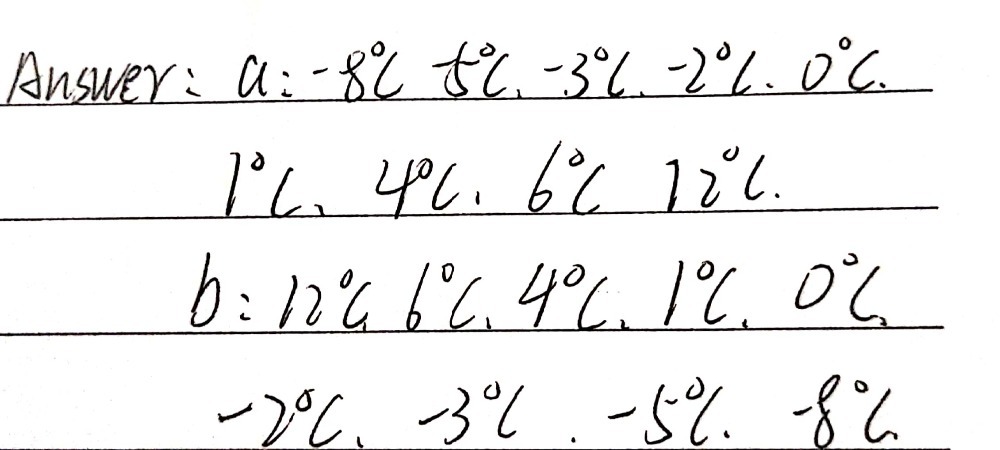 Answer: a: -8°C -5°C. -3°C. -2°C. 0°C.
1°C. 4°C. 6°C 12°C.
b: 12°C, 6°C. 4°C. 1°C. 0°C.
-2°C. -3°C. -5°C. -8°C.